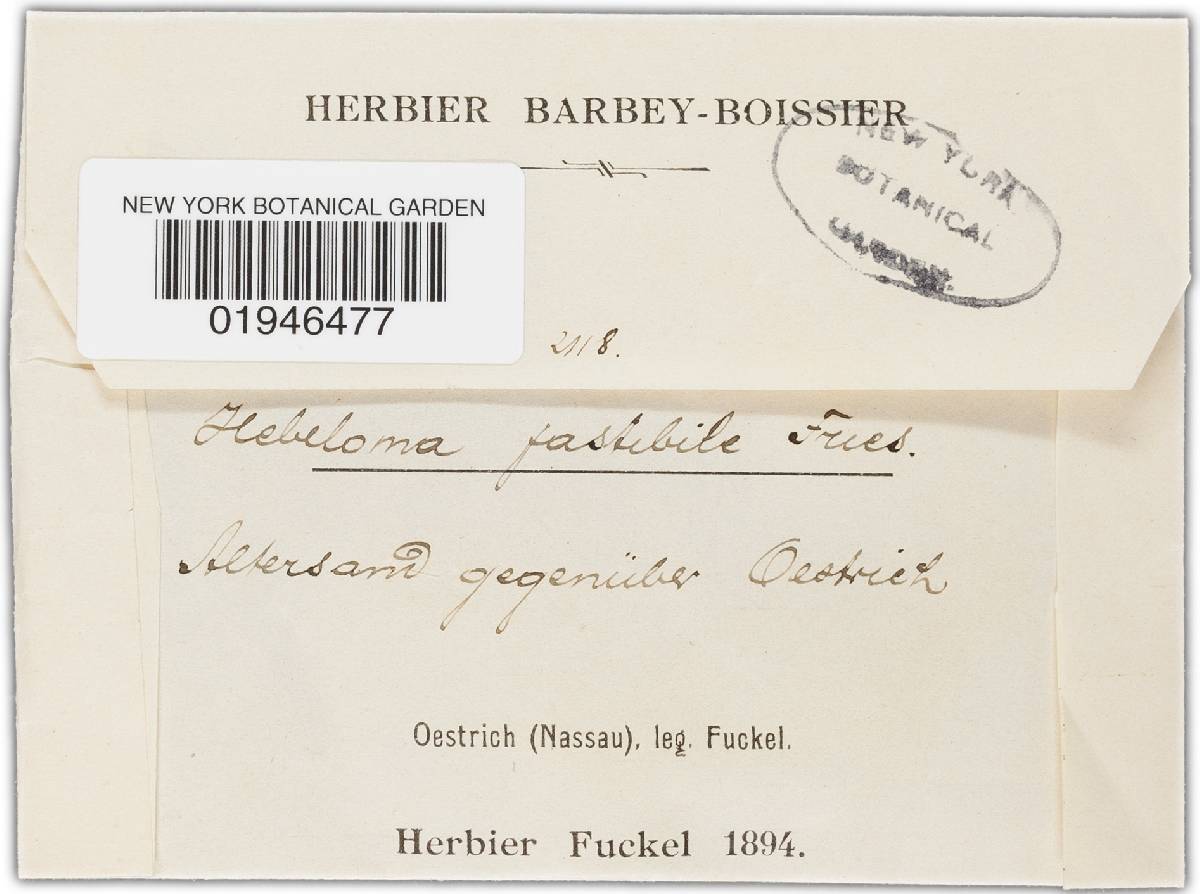 HERBIER BARBEY-BOISSIER
NEW YORK
BOTANICAL
GARDEN.
NEW YORK BOTANICAL GARDEN
01946477
2118.
Hebeloma fastibile Fries.
Altersand gegenüber Oestrich
Oestrich (Nassau), leg. Fuckel.
Herbier Fuckel 1894.